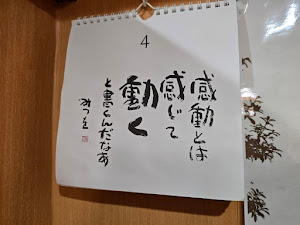 4
感動とは
感じて
動く
と書くんだなあ
みつを